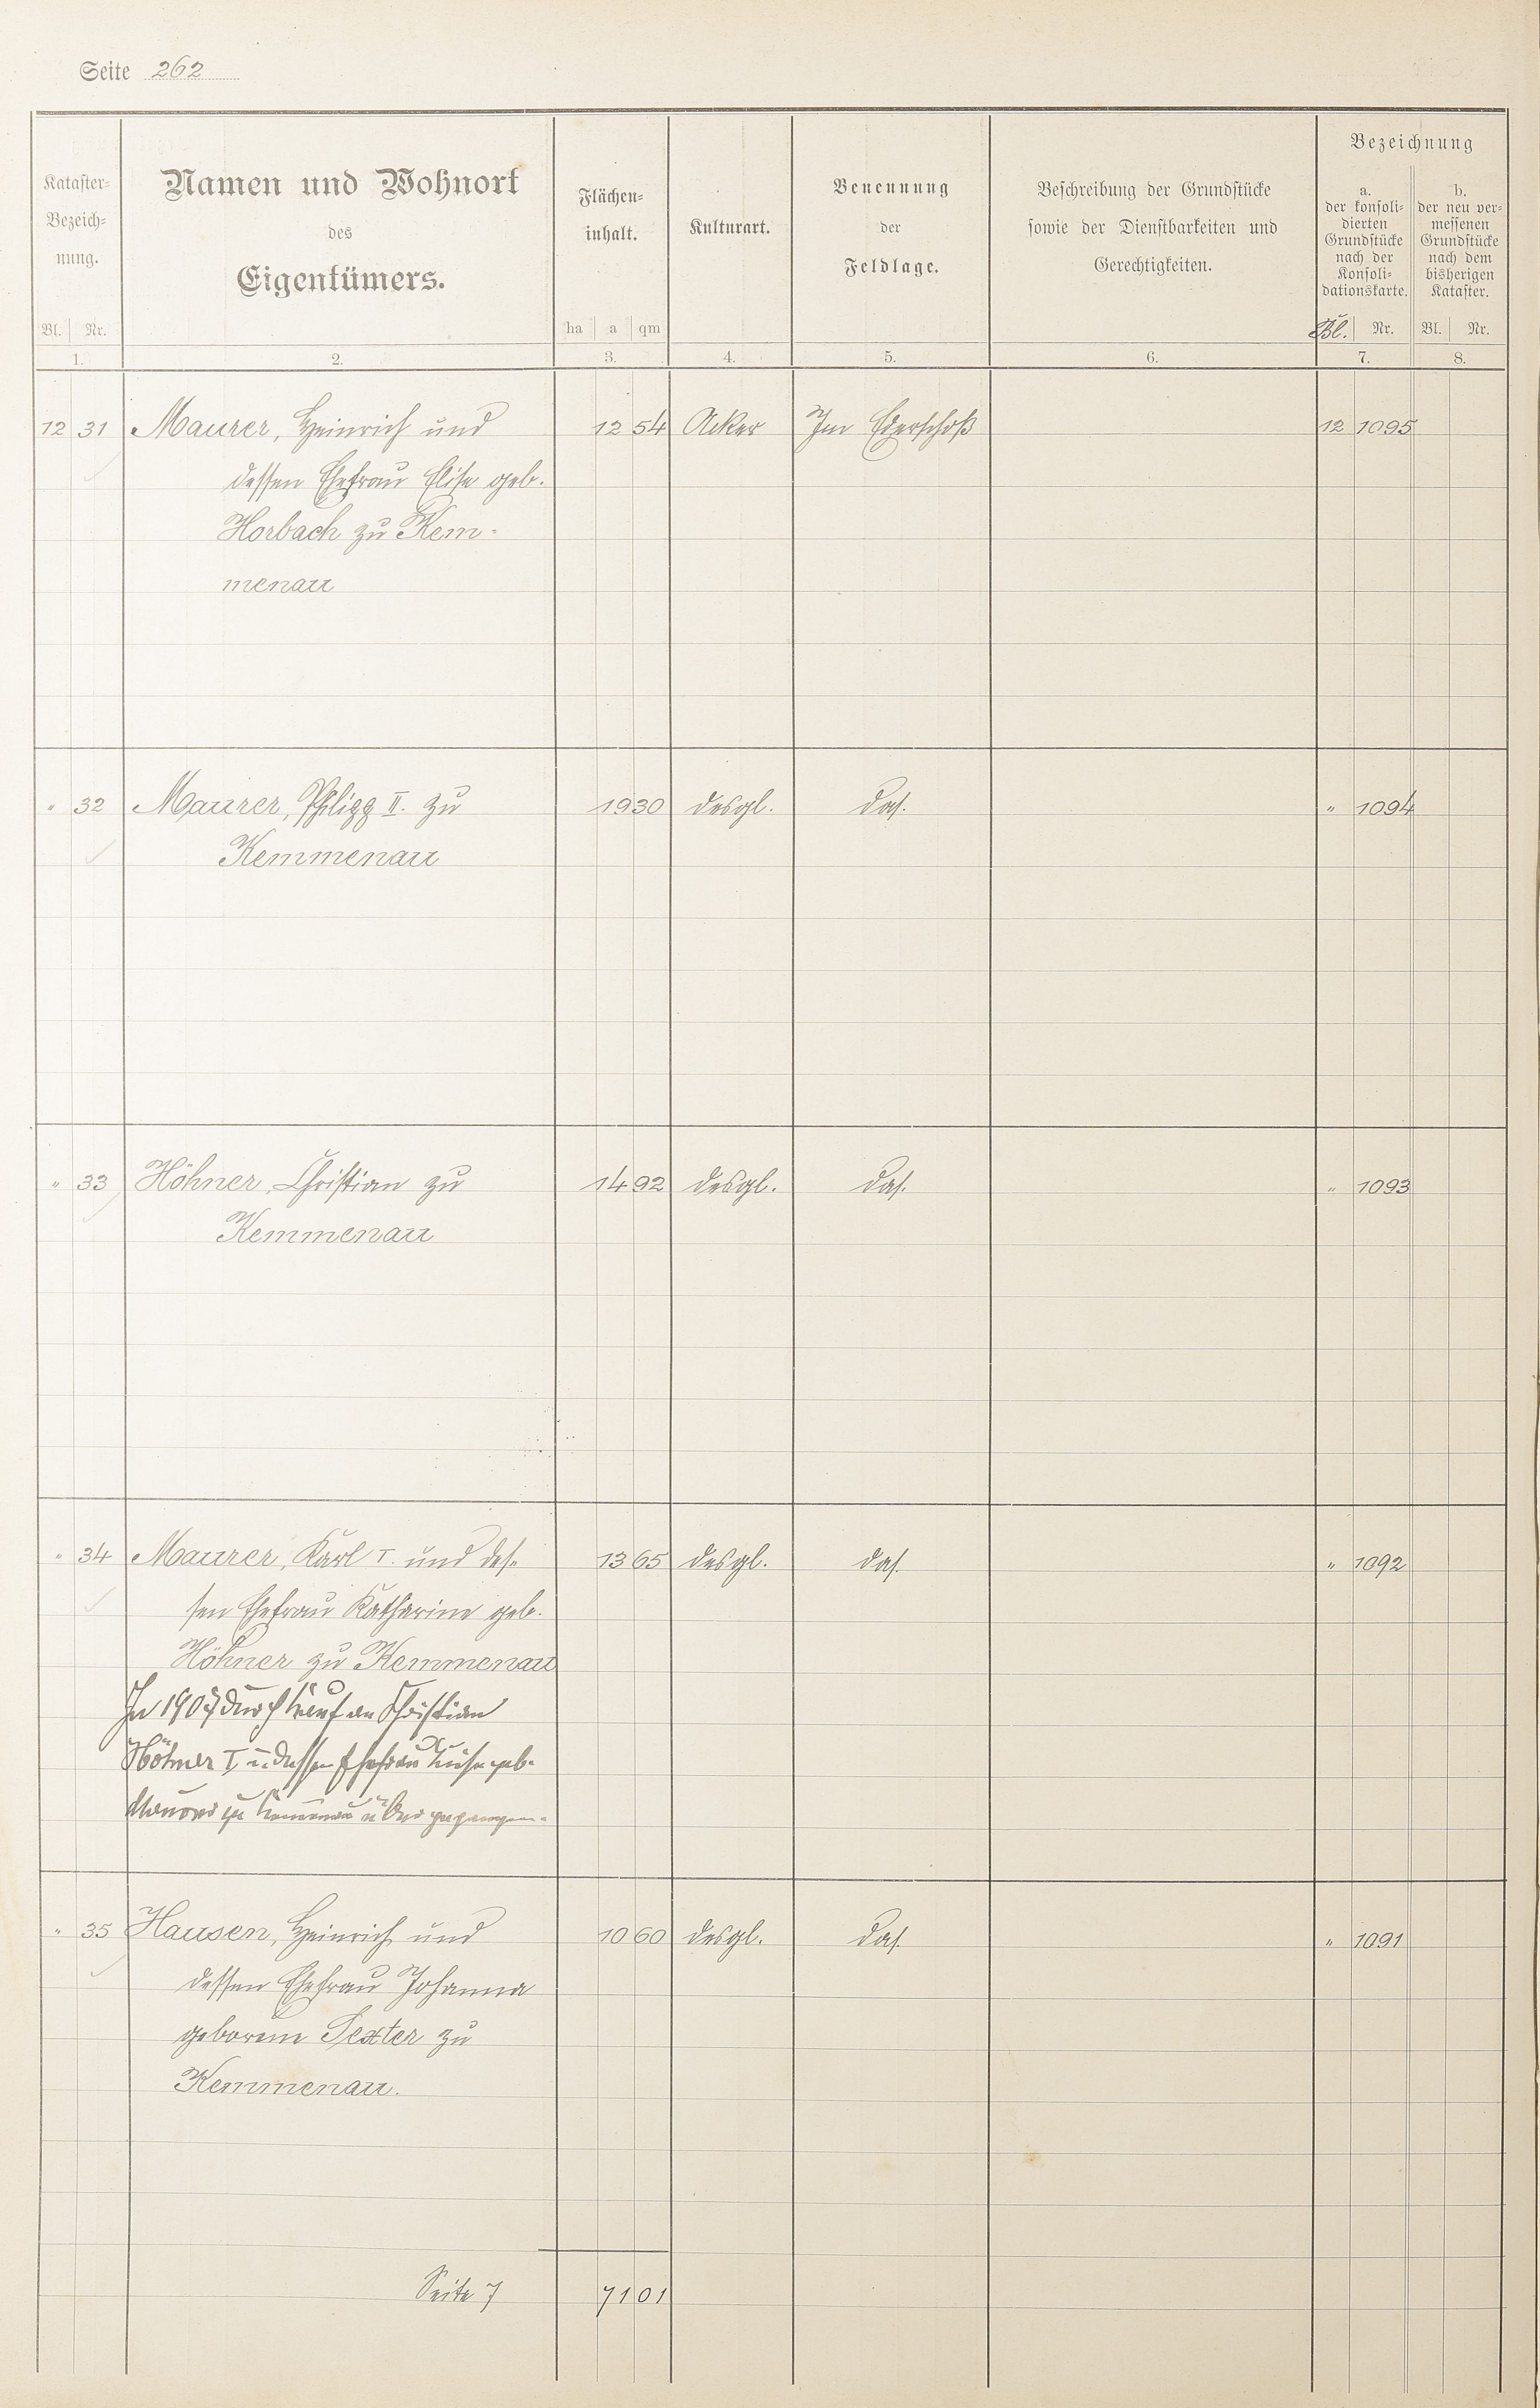 Seite 262
Kataster-
Bezeich-
nung.
Bl. Nr.
1.
Namen und Wohnort
des
Eigentümers.
2.
Flächen-
inhalt.
ha a qm
3.
Kulturart.
4.
Benennung
der
Feldlage.
5.
Beschreibung der Grundstücke
sowie der Dienstbarkeiten und
Gerechtigkeiten.
6.
Bezeichnung
a.
der konsoli-
dierten
Grundstücke
nach der
Konsoli-
dationskarte.
Bl. Nr.
7.
b.
der neu ver-
messenen
Grundstücke
nach dem
bisherigen
Kataster.
Bl. Nr.
8.
12 31 Maurer, Heinrich und 12 54 Acker Im 12 1095
dessen Ehefrau Elise geb.
Horbach zu Kem-
menau
" 32 Maurer, Philipp II. zu 19 30 desgl. das. " 1094
Kemmenau
" 33 Höhner, Christian zu 14 92 desgl. das. " 1093
Kemmenau
" 34 Maurer, Karl I. und des- 13 65 desgl. das. " 1092
sen Ehefrau Katharine geb.
Höhner zu Kemmenau
In durch Kauf an Christian
Höhner I, u. dessen Ehefrau geb.
Maurer zu Kemmenau übergegangen.
" 35 Hausen, Heinrich und 10 60 desgl. das. " 1091
dessen Ehefrau Johanna
geborene Sexter zu
Kemmenau.
Seite 7 71 01